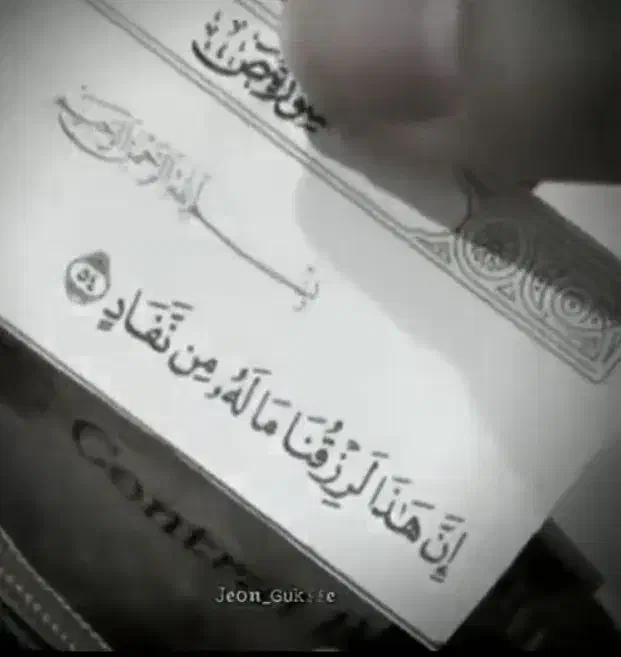 سورة ص
بسم الله الرحمن الرحيم
إِنَّ هَٰذَا لَرِزْقُنَا مَا لَهُۥ مِن نَّفَادٍ ٥٤
Contr
Jeon_Guk